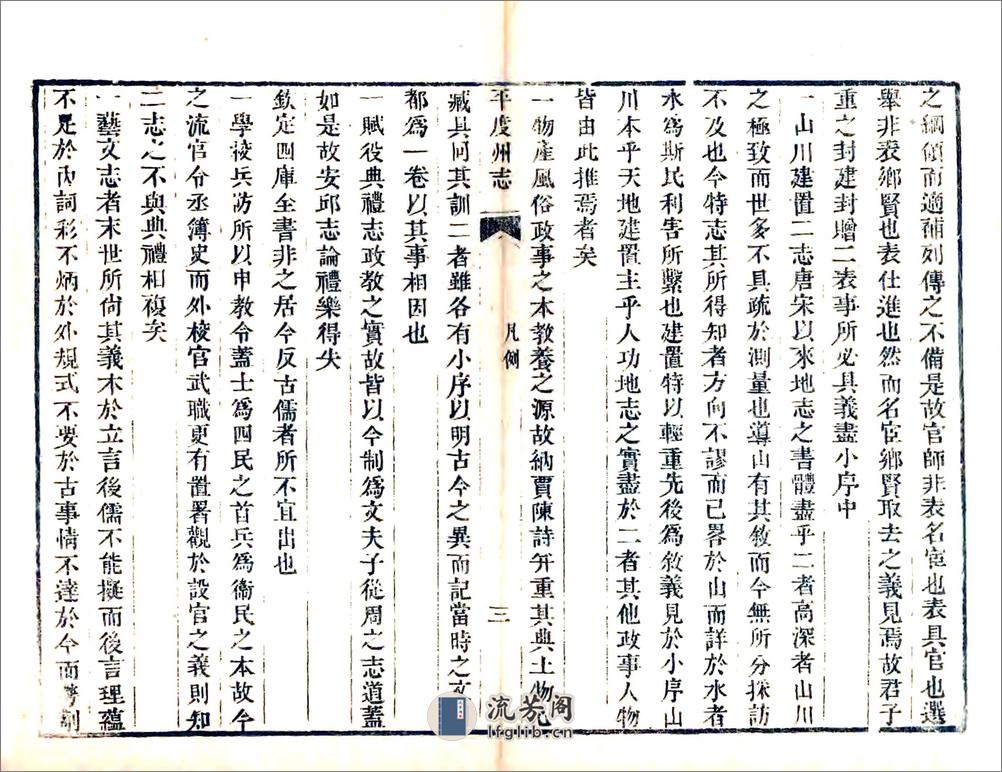 之綱領而適補列傳之不備是故官師非表名宦也表具官也選
舉非表鄉賢也表仕進也然而名宦鄉賢取去之義見焉故君子
重之封建封贈二表事所必具義盡小序中
一山川建置二志唐宋以來地志之書體盡乎二者高深者山川
之極致而世多不具疏於測量也導山有其敘而今無所分採訪
不及也今特志其所得知者方向不謬而已畧於山而詳於水者
水為斯民利害所繫也建置特以輕重先後為敘義見於小序山
川本乎天地建置主乎人功地志之實盡於二者其他政事人物
皆由此推焉者矣
一物產風俗政事之本教養之源故納賈陳詩并重其典土物心
平度州志
凡例
三
臧具同其訓二者雖各有小序以明古今之異而記當時之文
都為一卷以其事相因也
一賦役典禮志政教之實故皆以今制為文夫子從周之志道蓋
如是故安邱志論禮樂得失
欽定四庫全書非之居今反古儒者所不宜出也
一學校兵防所以申教令蓋士為四民之首兵為衞民之本故今
之流官令丞簿史而外校官武職更有置署觀於設官之義則知
二志之不與典禮相複矣
一藝文志者末世所尚其義本於立言後儒不能擬而後言理蘊
不足於內詞彩不炳於外規式不要於古事情不達於今而勦
流芳阁
lfglib.cn